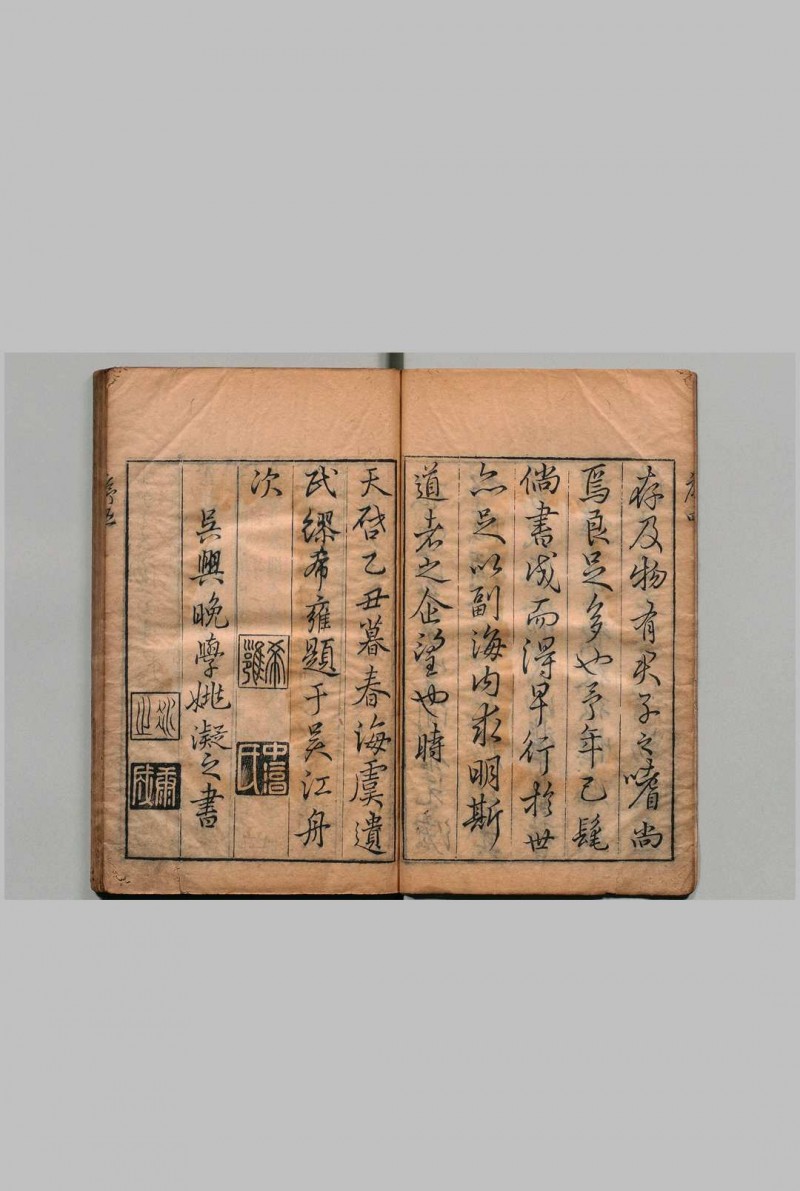 存及物有君子之嗜尚
焉良足多也予年已髦
倘書成而得早行於世
亦足以副海内求明斯
道者之企望也時
天啓乙丑暮春海虞遺
民繆希雍題于吳江舟
次
希雍
吳興晚學姚凝之書
序四
序五